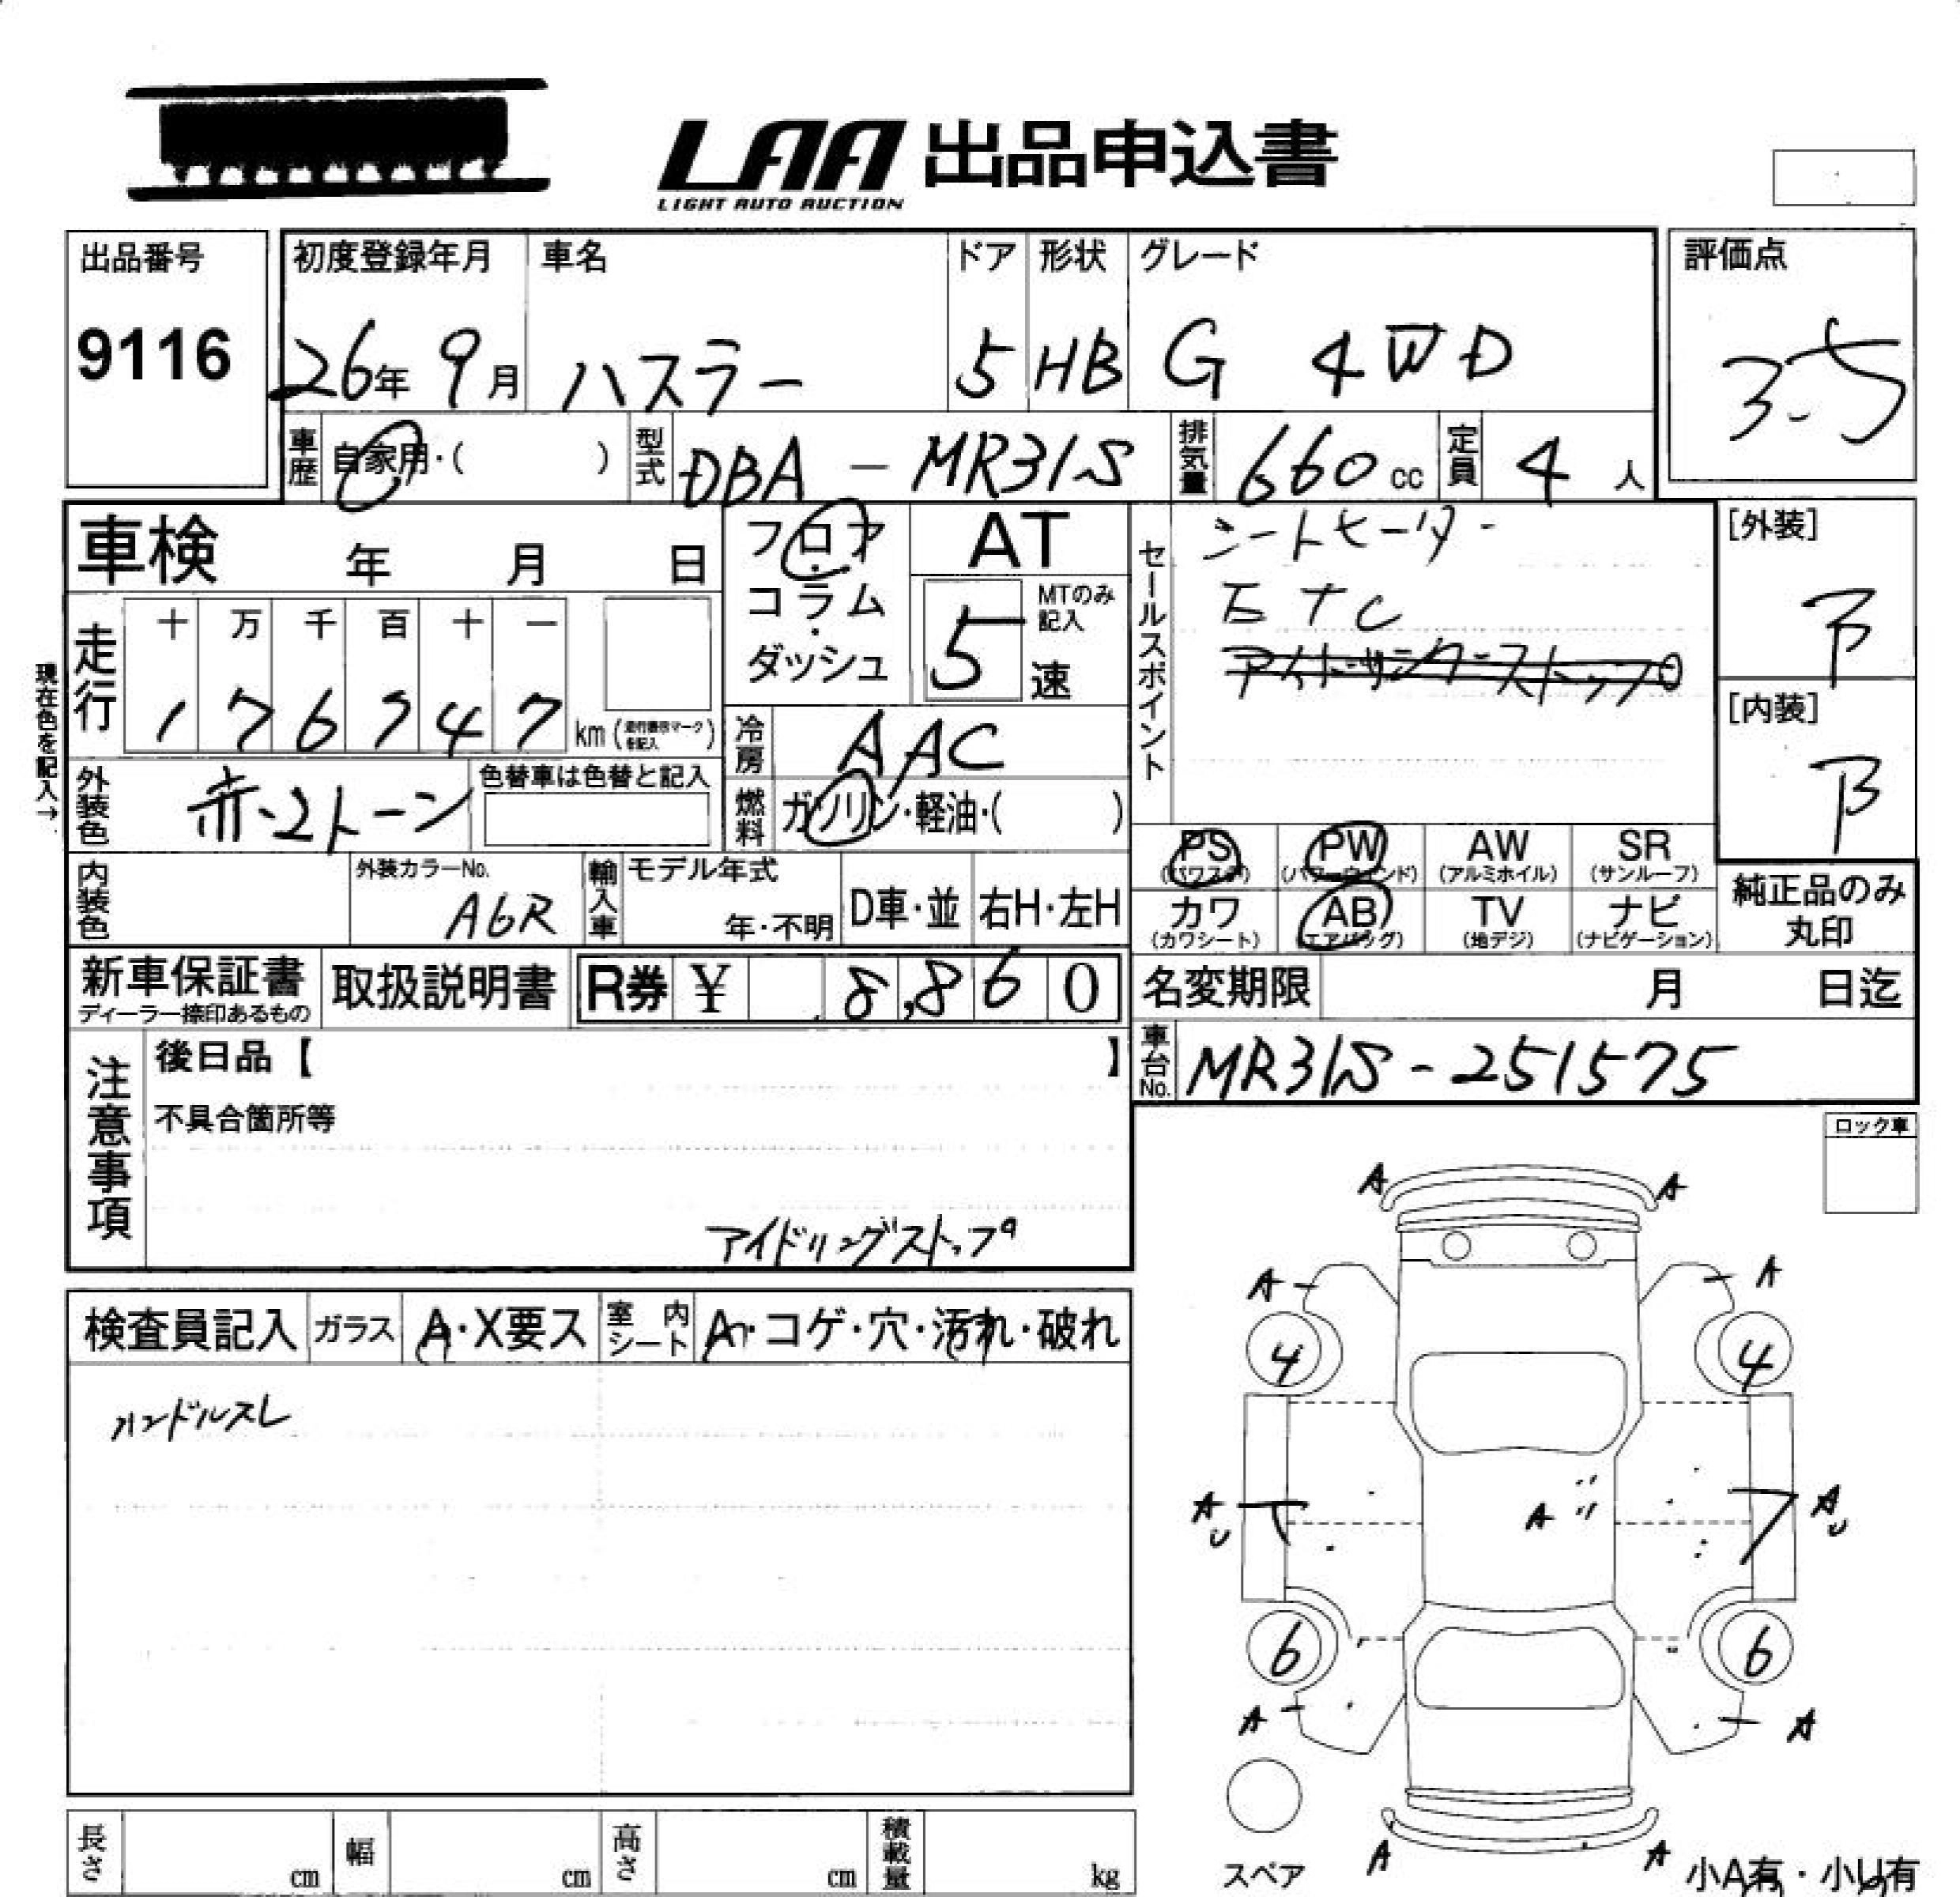 LAA 出品申込書
LIGHT AUTO AUCTION
出品番号
9116
初度登録年月 車名 ドア 形状 グレード
26年 9月 ハスラー 5 HB G 4WD
評価点
3.5
車歴 自家用・( ) 型式 DBA-MR31S 排気量 660cc 定員 4人
車検 年 月 日
フロア・コラム・ダッシュ
AT
5速
MTのみ記入
セールスポイント
シートヒーター
ETC
アイドリングストップ
[外装]
B
[内装]
B
現在色を記入→
走行
十 万 千 百 十 一
1 7 6 7 4 7 km (走行書示マークを記入)
冷房 AAC
外装色 赤-2トーン
色替車は色替と記入
燃料 ガソリン・軽油・( )
PS (パワステ) PW (パワーウインド) AW (アルミホイル) SR (サンルーフ)
カワ (カワシート) AB (エアバッグ) TV (地デジ) ナビ (ナビゲーション)
純正品のみ丸印
内装色 外装カラーNo. A6R
輸入車 モデル年式 年・不明 D車・並 右H・左H
新車保証書 取扱説明書 R券 ¥ 8,860
ディーラー捺印あるもの
名変期限 月 日迄
車台No. MR31S-251575
注意事項
後日品【 】
不具合箇所等
アイドリングストップ
ロック車
検査員記入 ガラス A・X要ス 室内シート A・コゲ・穴・汚れ・破れ
ハンドルスレ
A A
A A
4 4
AU A AU
6 6
A A
スペア
A A
小A有・小U有
長さ cm 幅 cm 高さ cm 積載量 kg